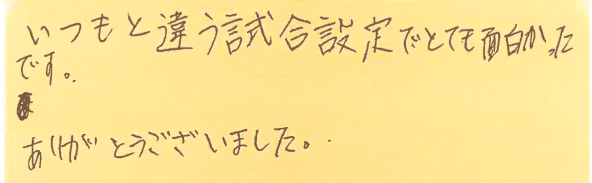 いつもと違う試合設定でとても面白かった
です。
ありがとうございました。